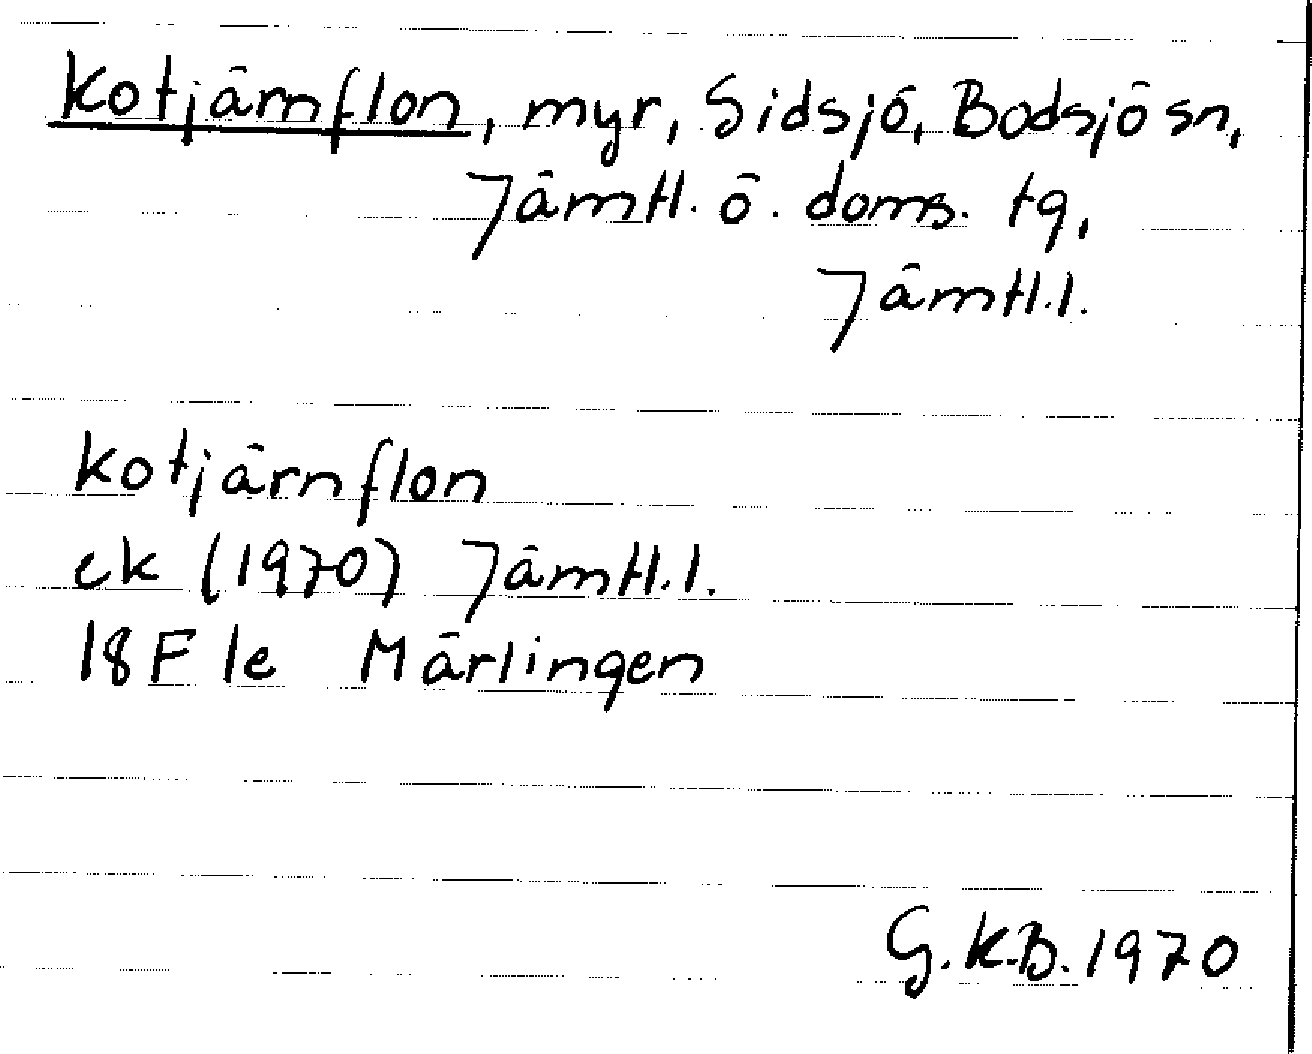 Kotjärnflon, myr, Sidsjö, Bodsjö sn,
Jämtl. ö. doms. tg,
Jämtl. l.
Kotjärnflon
ek (1970) Jämtl. l.
18F 1e Märlingen
G.K.B. 1970